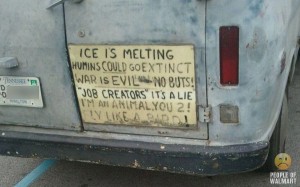 ICE IS MELTING
HUMINS COULD GO EXTINCT
WAR IS EVIL NO BUTS!
"JOB CREATORS" IT'S A LIE
I'M AN ANIMAL YOU 2!
LIKE A
PEOPLE OF
WALMART